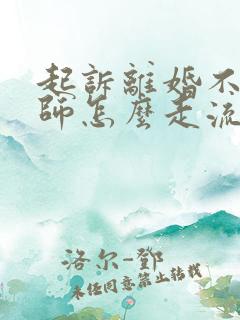 起訴離婚不
師怎麼走流
洛尔-鄧
未经同意禁止转载